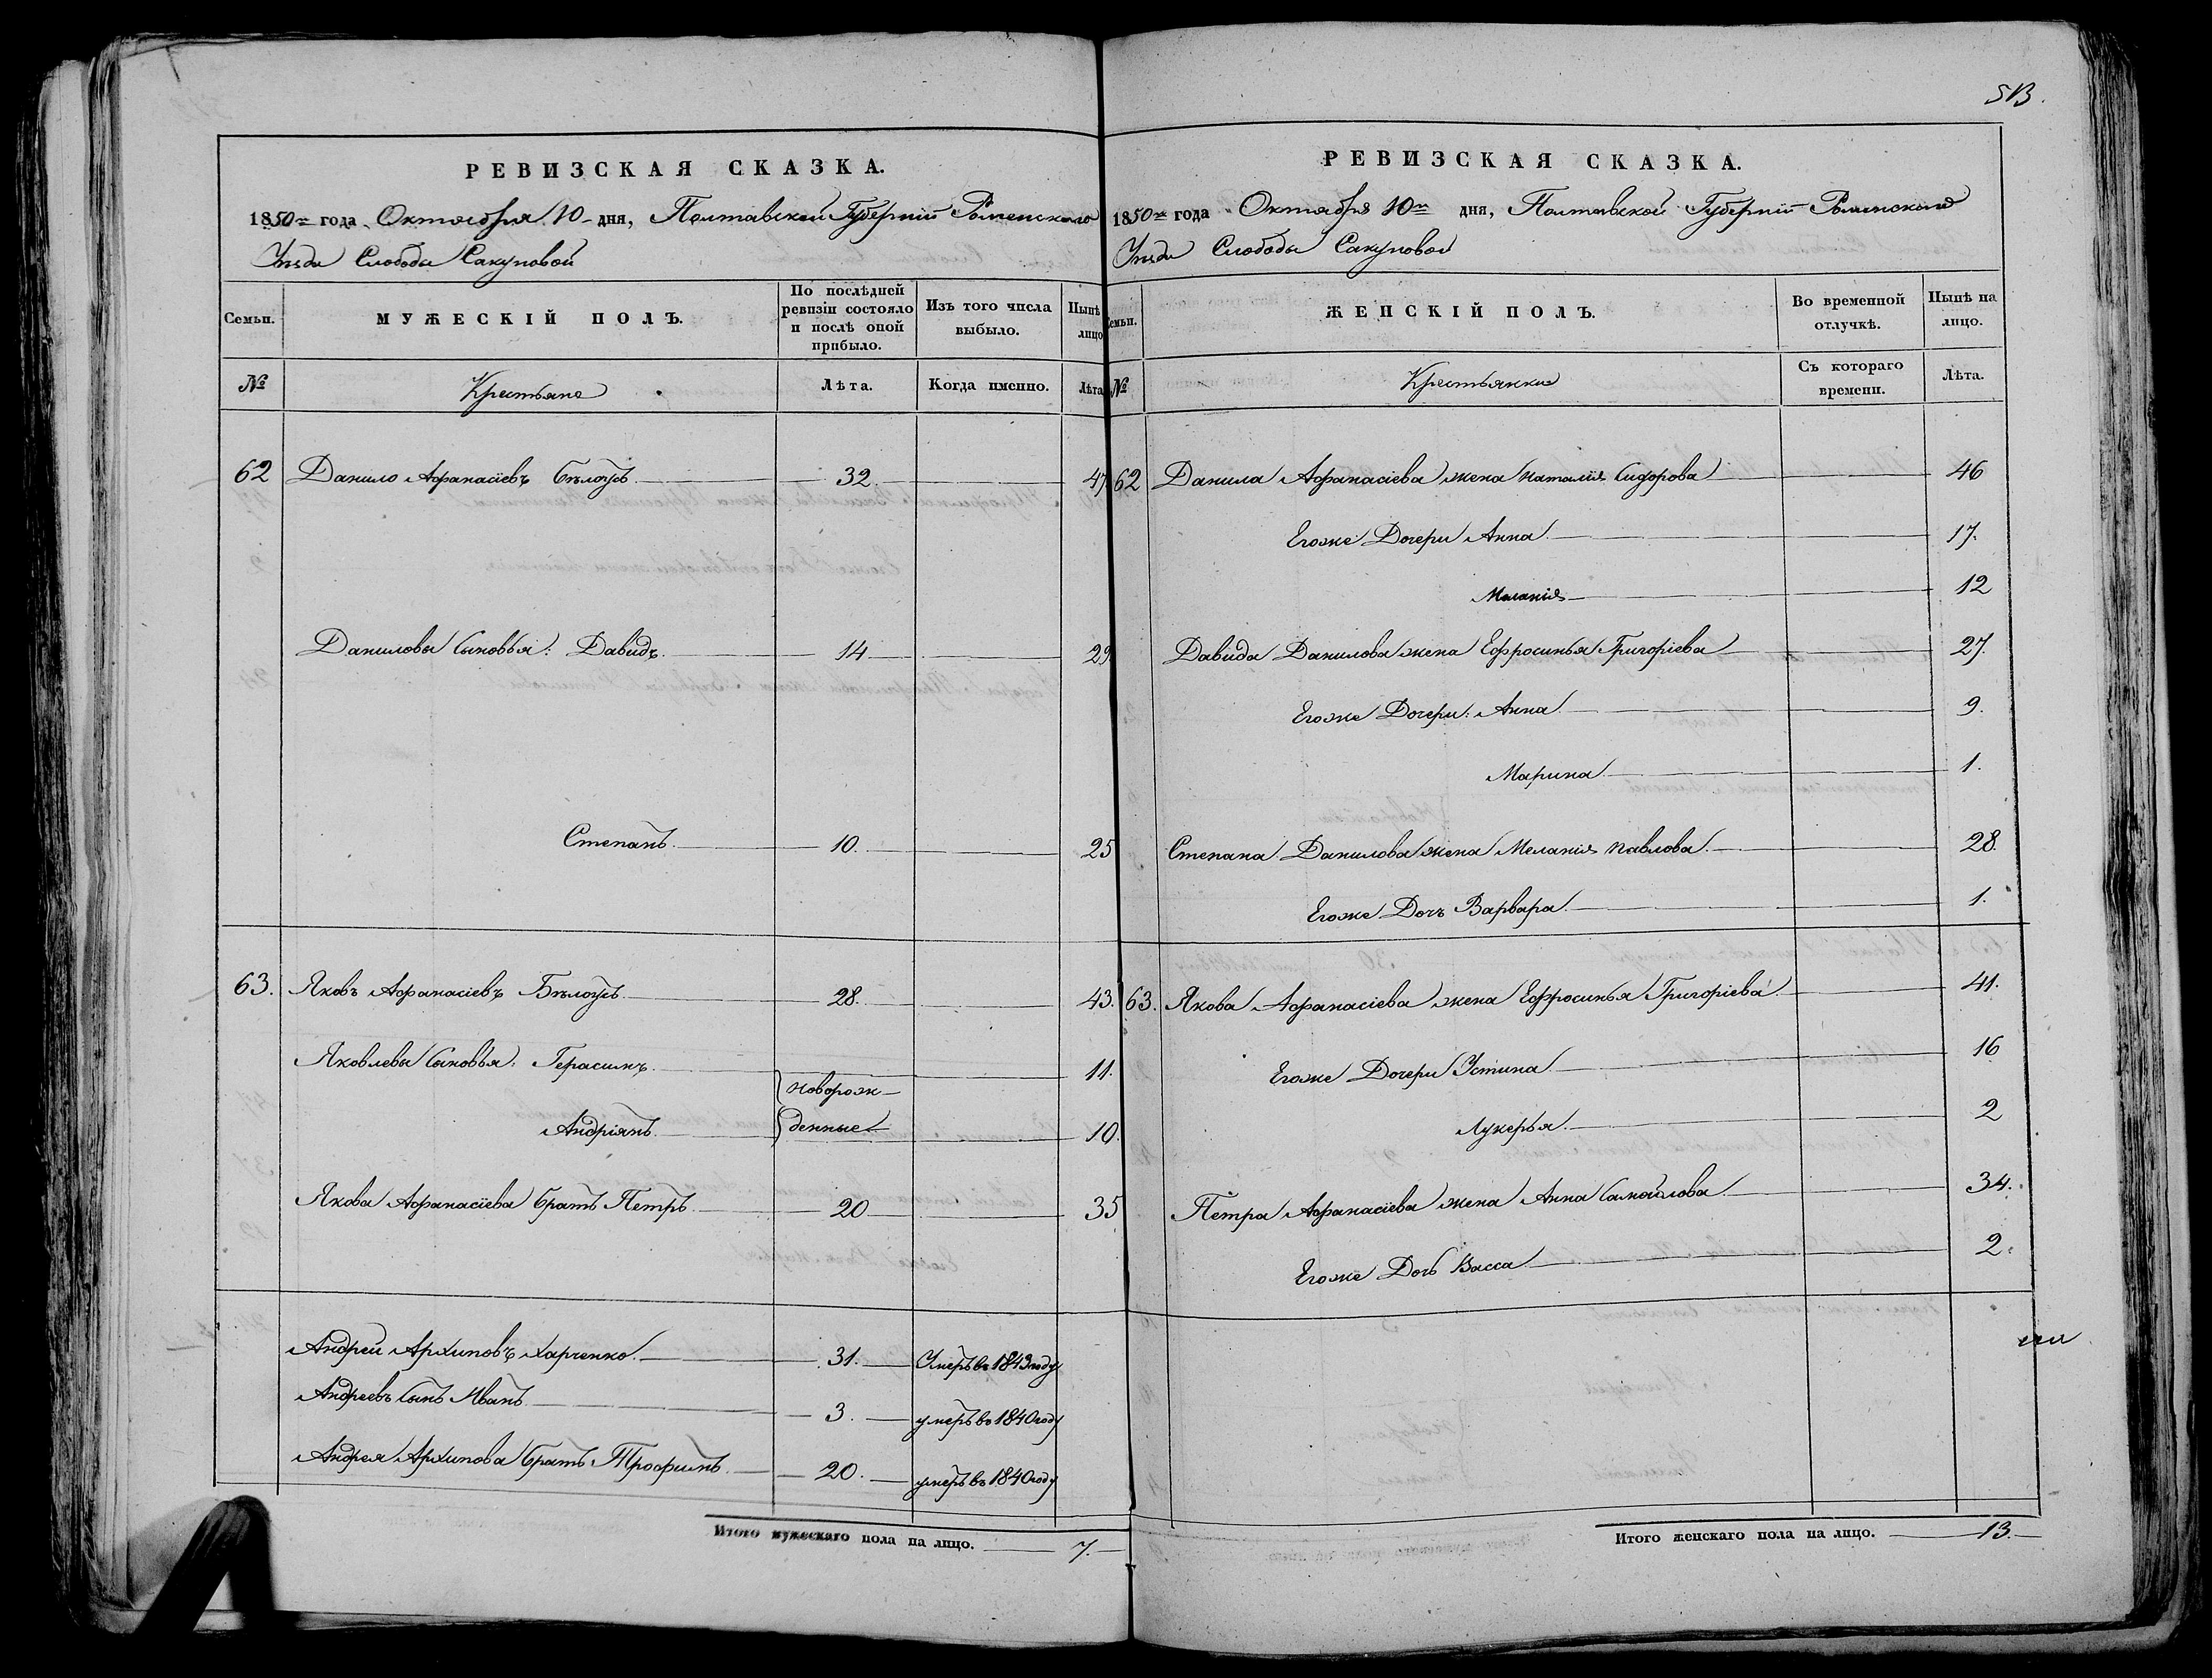 513.
РЕВИЗСКАЯ СКАЗКА.
1850го года Октября 10 дня, Полтавской Губерніи Роменскаго
Уѣзда Слободы Сакуновой
Семьи.
МУЖЕСКІЙ ПОЛЪ.
По послѣдней ревизіи состояло и послѣ оной прибыло.
Изъ того числа выбыло.
Нынѣ лицо
№
Крестьяне
Лѣта.
Когда именно.
Лѣта
62 Данило Афанасіевъ Бѣлоусъ 32. 47.
Даниловы Сыновья: Давидъ 14 29.
Степанъ 10. 25
63. Яковъ Афанасіевъ Бѣлоусъ 28. 43.
Яковлевы Сыновья: Герасимъ новорож- 11.
Андріянъ денные 10.
Якова Афанасіева братъ Петръ 20 35
Андрей Архиповъ Харченко. 31. Умеръ въ 1849 году
Андреевъ Сынъ Иванъ 3. умеръ въ 1840 году
Андрея Архипова братъ Трофимъ 20. умеръ въ 1840 году
Итого мужескаго пола на лицо. 7.
РЕВИЗСКАЯ СКАЗКА.
1850го года Октября 10го дня, Полтавской Губерніи Роменскаго
Уѣзда Слободы Сакуновой
Семьи.
ЖЕНСКІЙ ПОЛЪ.
Во временной отлучкѣ.
Нынѣ на лицо.
№
Крестьянки
Съ котораго времени.
Лѣта.
62 Данила Афанасіева жена Наталія Сидорова 46
Егоже Дочери Анна 17.
Меланія 12
Давида Данилова жена Ефросинья Григоріева 27.
Егоже Дочери: Анна 9.
Марина 1.
Степана Данилова жена Меланія Павлова. 28.
Егоже Дочь Варвара 1.
63. Якова Афанасіева жена Ефросинья Григоріева 41.
Егоже Дочери Устина 16
Лукерья 2
Петра Афанасіева жена Анна Самойлова 34.
Егоже Дочь Васса 2.
Итого женскаго пола на лицо. 13.